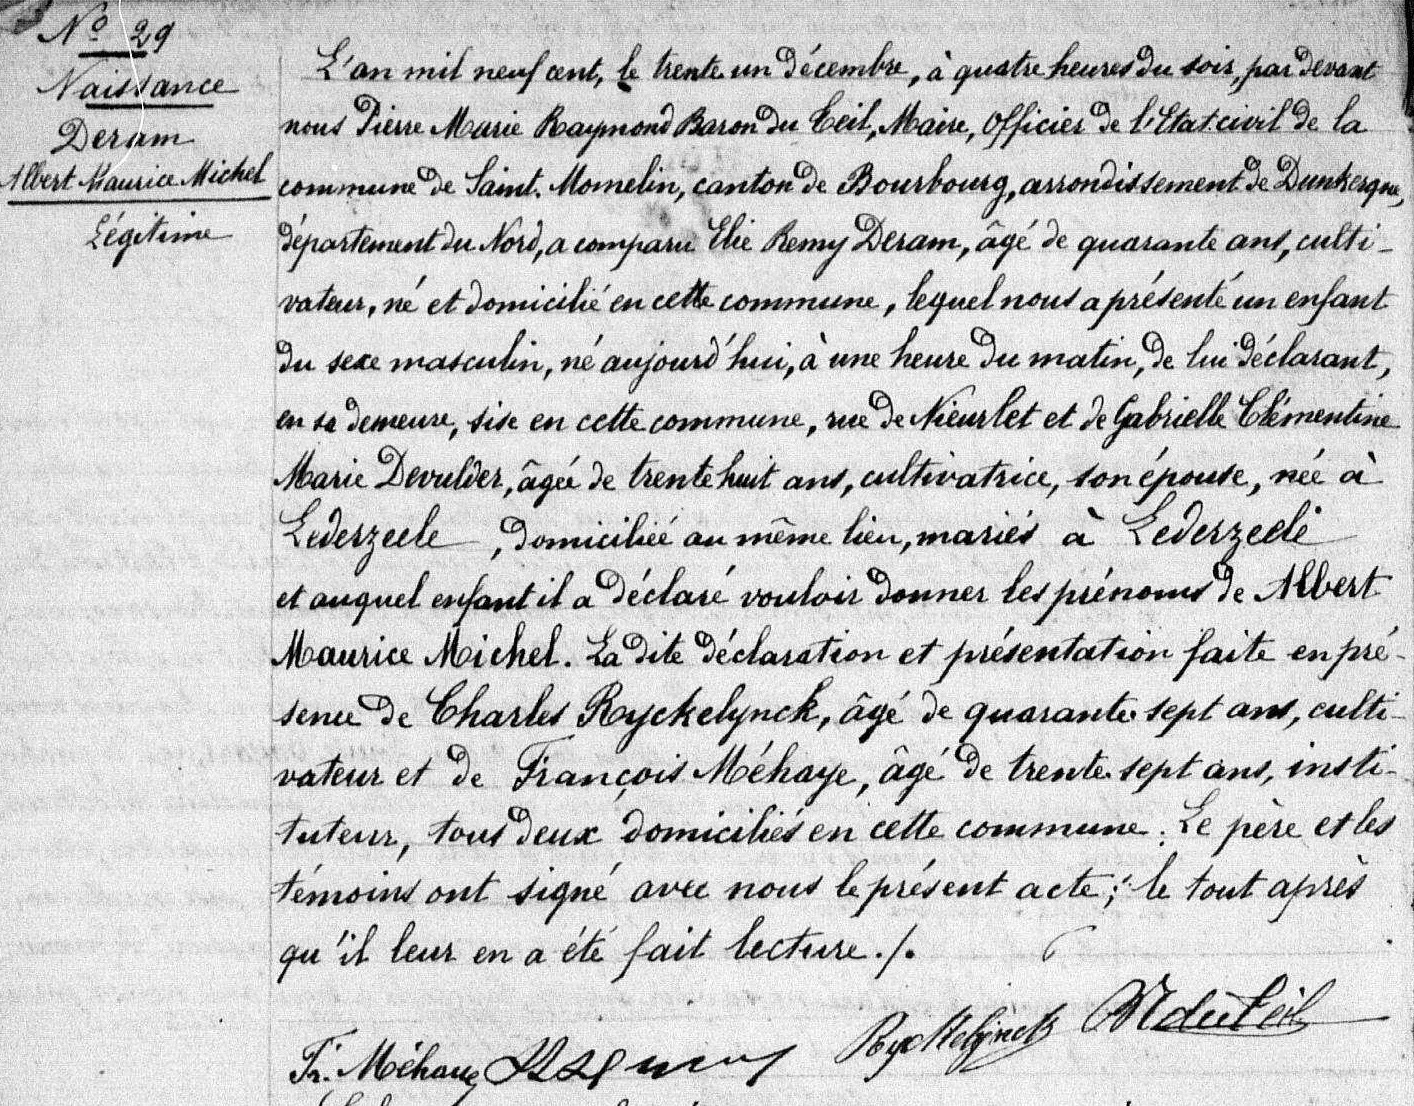 Nº 29
Naissance
Deram
Albert Maurice Michel
Légitime
L'an mil neuf cent, le trente un décembre, à quatre heures du soir, par devant
nous Pierre Marie Raymond Baron du Teil, Maire, Officier de l'Etat civil de la
commune de Saint-Momelin, canton de Bourbourg, arrondissement de Dunkerque,
département du Nord, a comparu Elie Remy Deram, âgé de quarante ans, culti-
vateur, né et domicilié en cette commune, lequel nous a présenté un enfant
du sexe masculin, né aujourd'hui, à une heure du matin, de lui déclarant,
en sa demeure, sise en cette commune, rue de Nieurlet et de Gabrielle Clémentine
Marie Devulder, âgée de trente huit ans, cultivatrice, son épouse, née à
Lederzeele, domiciliée au même lieu, mariés à Lederzeele
et auquel enfant il a déclaré vouloir donner les prénoms de Albert
Maurice Michel. La dite déclaration et présentation faite en pré-
sence de Charles Ryckelynck, âgé de quarante sept ans, culti-
vateur et de François Méhaye, âgé de trente sept ans, insti-
tuteur, tous deux domiciliés en cette commune. Le père et les
témoins ont signé avec nous le présent acte; le tout après
qu'il leur en a été fait lecture ./.
Fr. Méhaye Ryckelynck R du Teil